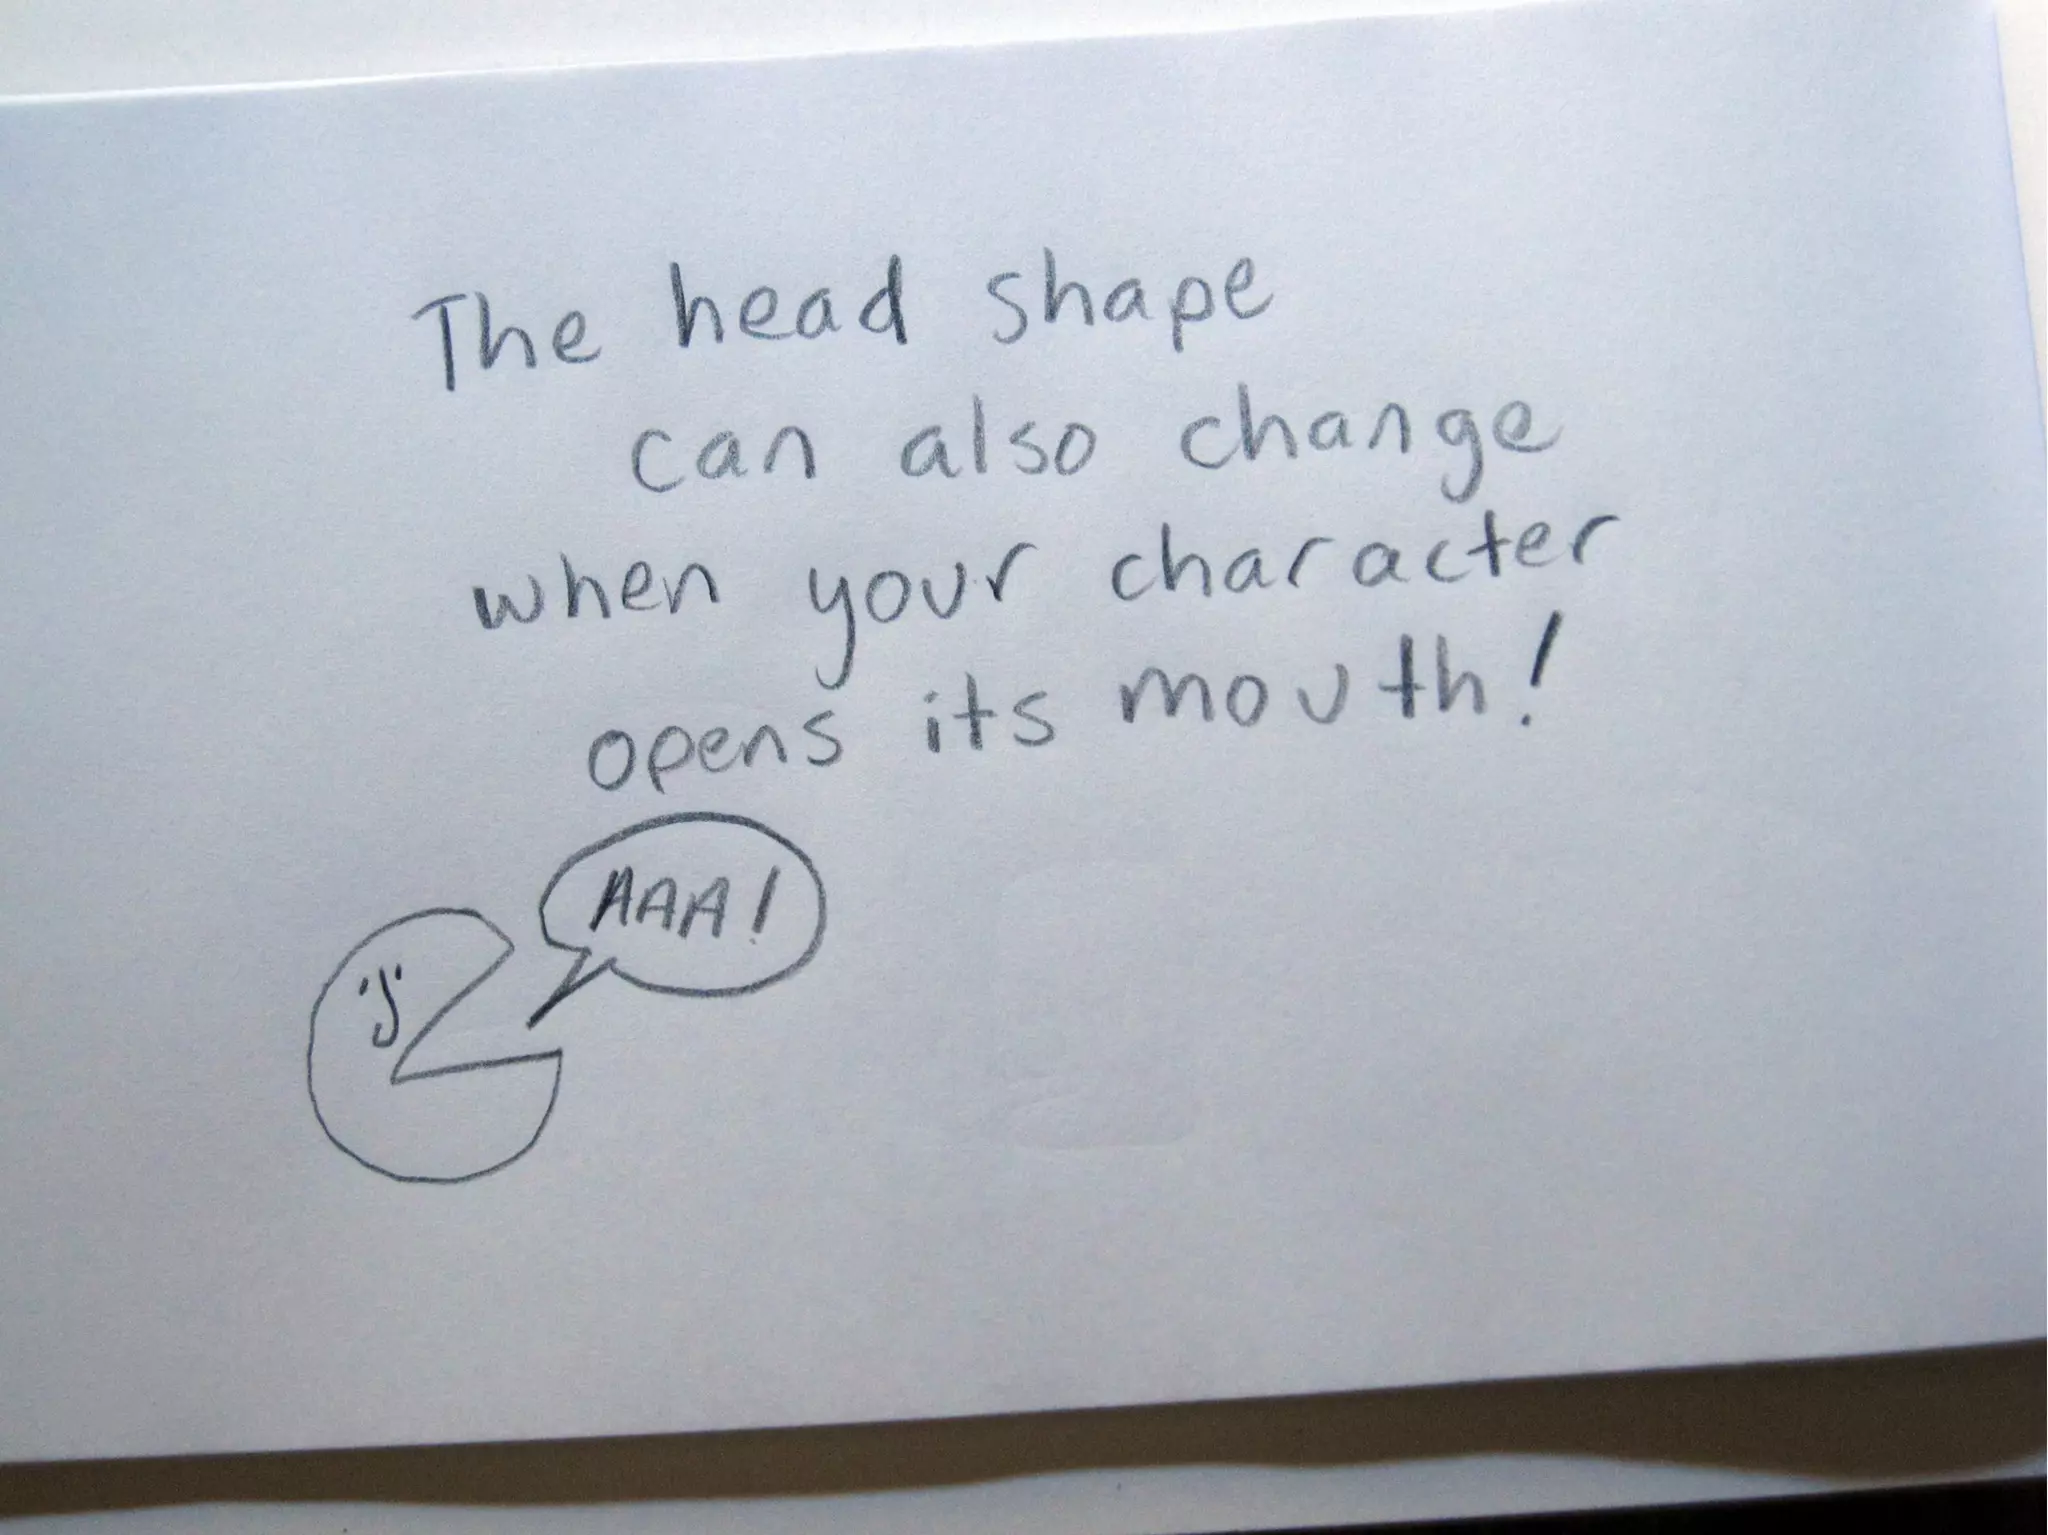 The head shape
can also change
when your character
opens its mouth!
AAA!